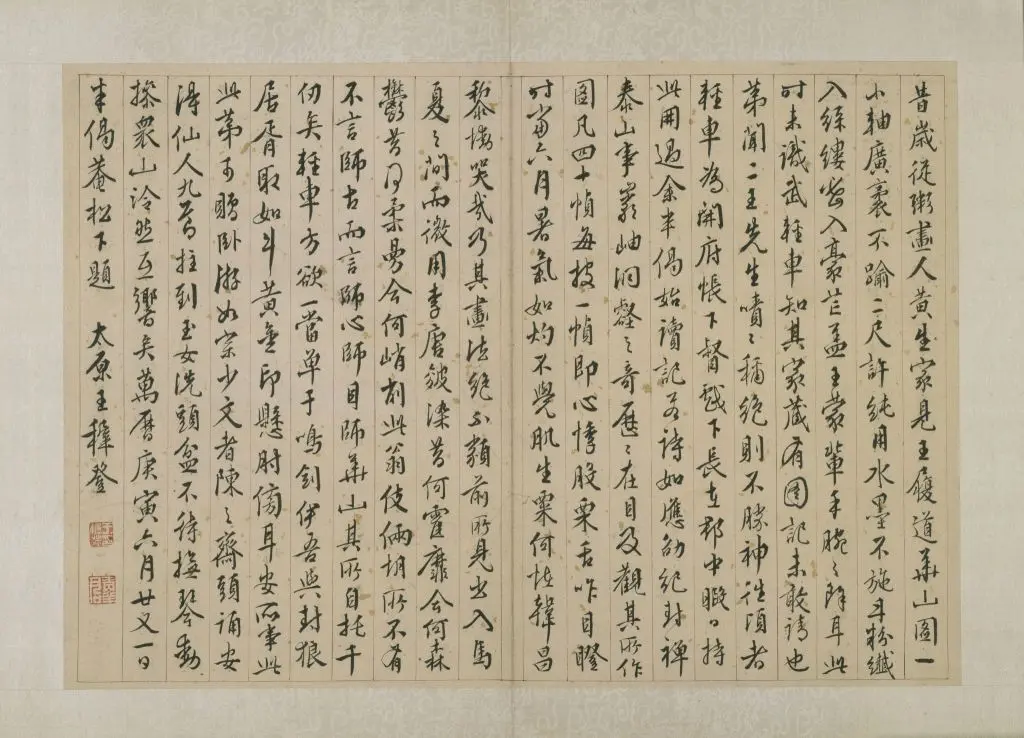 昔歲從鬻畫人黃生家見王履道華山圖一
小軸廣袤不踰二尺許純用水墨不施丹粉纖
入絲縷入豪芒蓋王蒙輩手腕之餘耳此
时未識武輕車知其家藏有圖記未敢請也
第聞二王先生嘖々稱絕則不勝神往頃者
輕車為開府帳下督戲下長在郡中暇日持
此冊過余半偈始讀記若詩如應劭紀封禪
泰山事巖岫洞壑之奇歷々在目及觀其所作
圖凡四十幀每披一幀即心悸股栗舌咋目瞪
时當六月暑氣如灼不覺肌生粟何恠韓昌
黎慟哭哉乃其畫法絕不類前所見出入馬
夏之間而微用李唐皴染昔何靃靡今何森
鬱昔何柔曼今何峭刻此翁伎倆胡所不有
不言師古而言師心師目師華山其所自托千
仞矣輕車方欲一當單于鳴劍伊吾與封狼
居胥取如斗黃金印懸肘傍耳安所事此
此第可贈臥游如宗少文者陳之齋頭誦安
得仙人九節拄到玉女洗頭盆不待撫琴動
操眾山泠然互響矣萬曆庚寅六月廿又一日
半偈菴松下題 太原王穉登